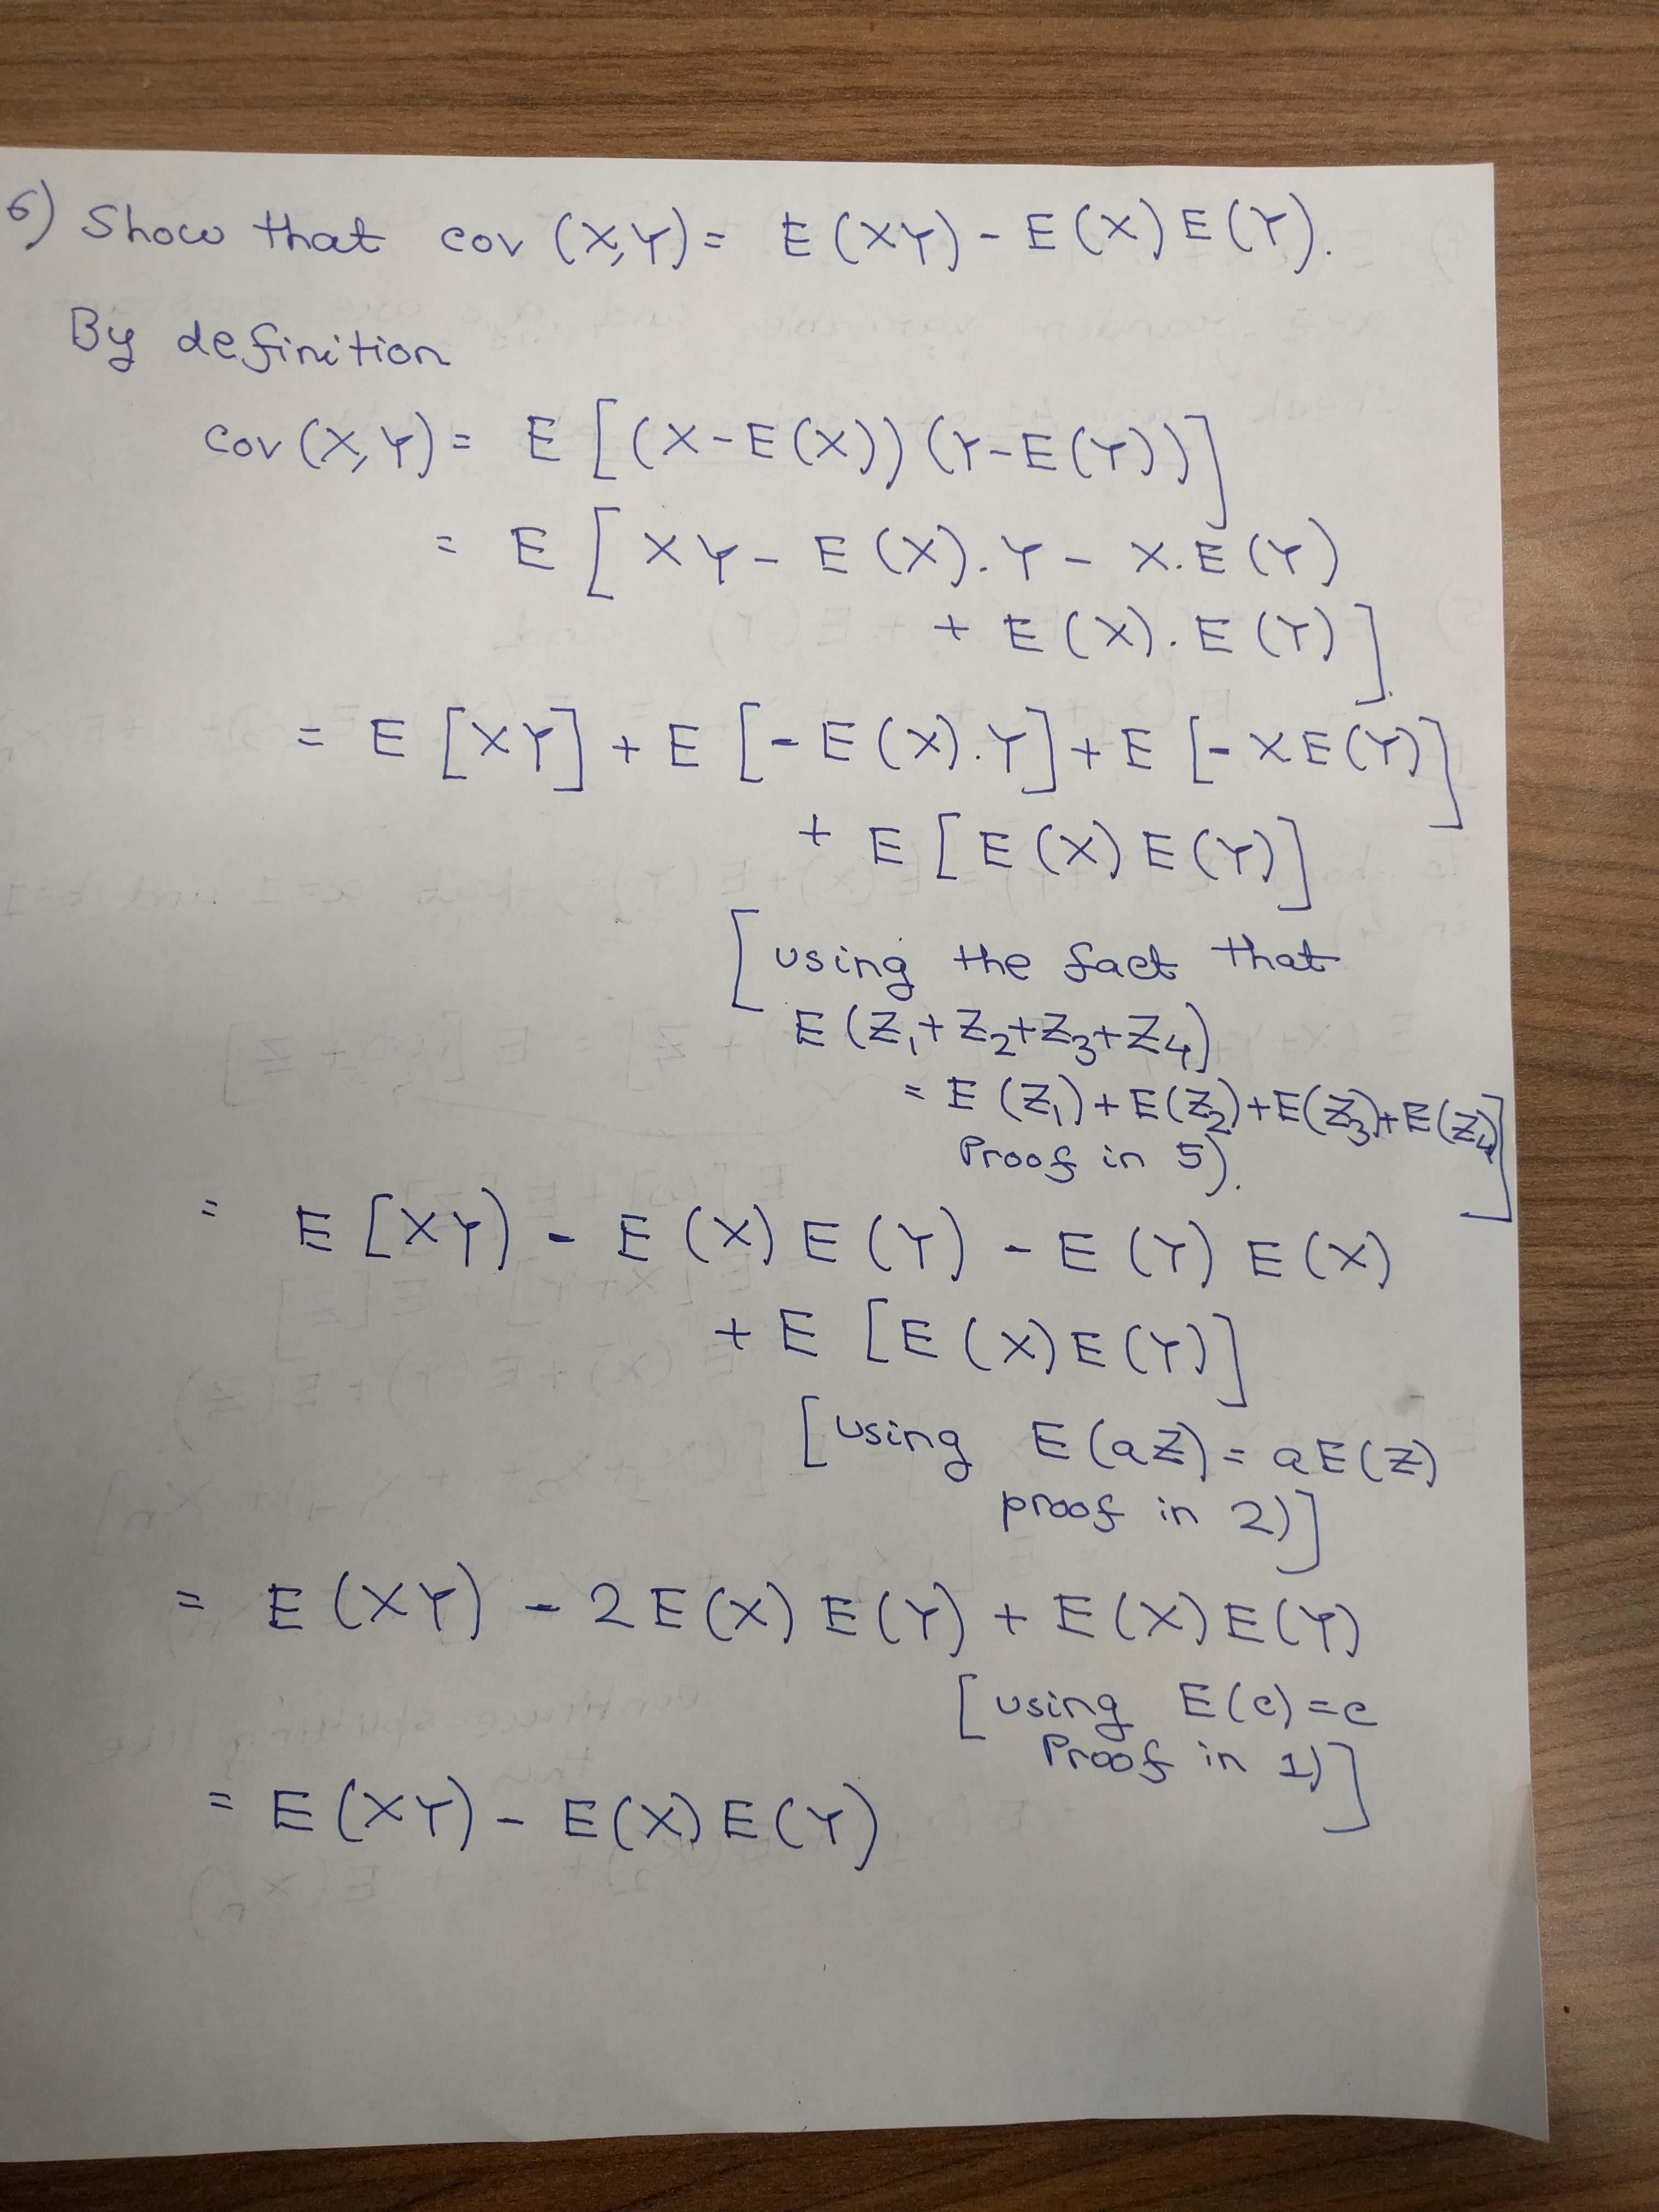 6) Show that cov (X,Y) = E(XY) - E(X) E(Y).
By definition
cov (X,Y) = E [(X-E(X)) (Y-E(Y))]
= E [ XY - E(X).Y - X.E(Y)
+ E(X).E(Y)]
= E [XY] + E [-E(X).Y] + E [-XE(Y)]
+ E [E(X) E(Y)]
[using the fact that
E (Z₁+Z₂+Z₃+Z₄)
= E(Z₁)+E(Z₂)+E(Z₃)+E(Z₄)
Proof in 5).]
= E [XY) - E(X) E(Y) - E(Y) E(X)
+ E [E(X) E(Y)]
[using E(aZ) = aE(Z)
proof in 2)]
= E(XY) - 2E(X) E(Y) + E(X) E(Y)
[using E(c)=c
Proof in 1)]
= E(XY) - E(X) E(Y)